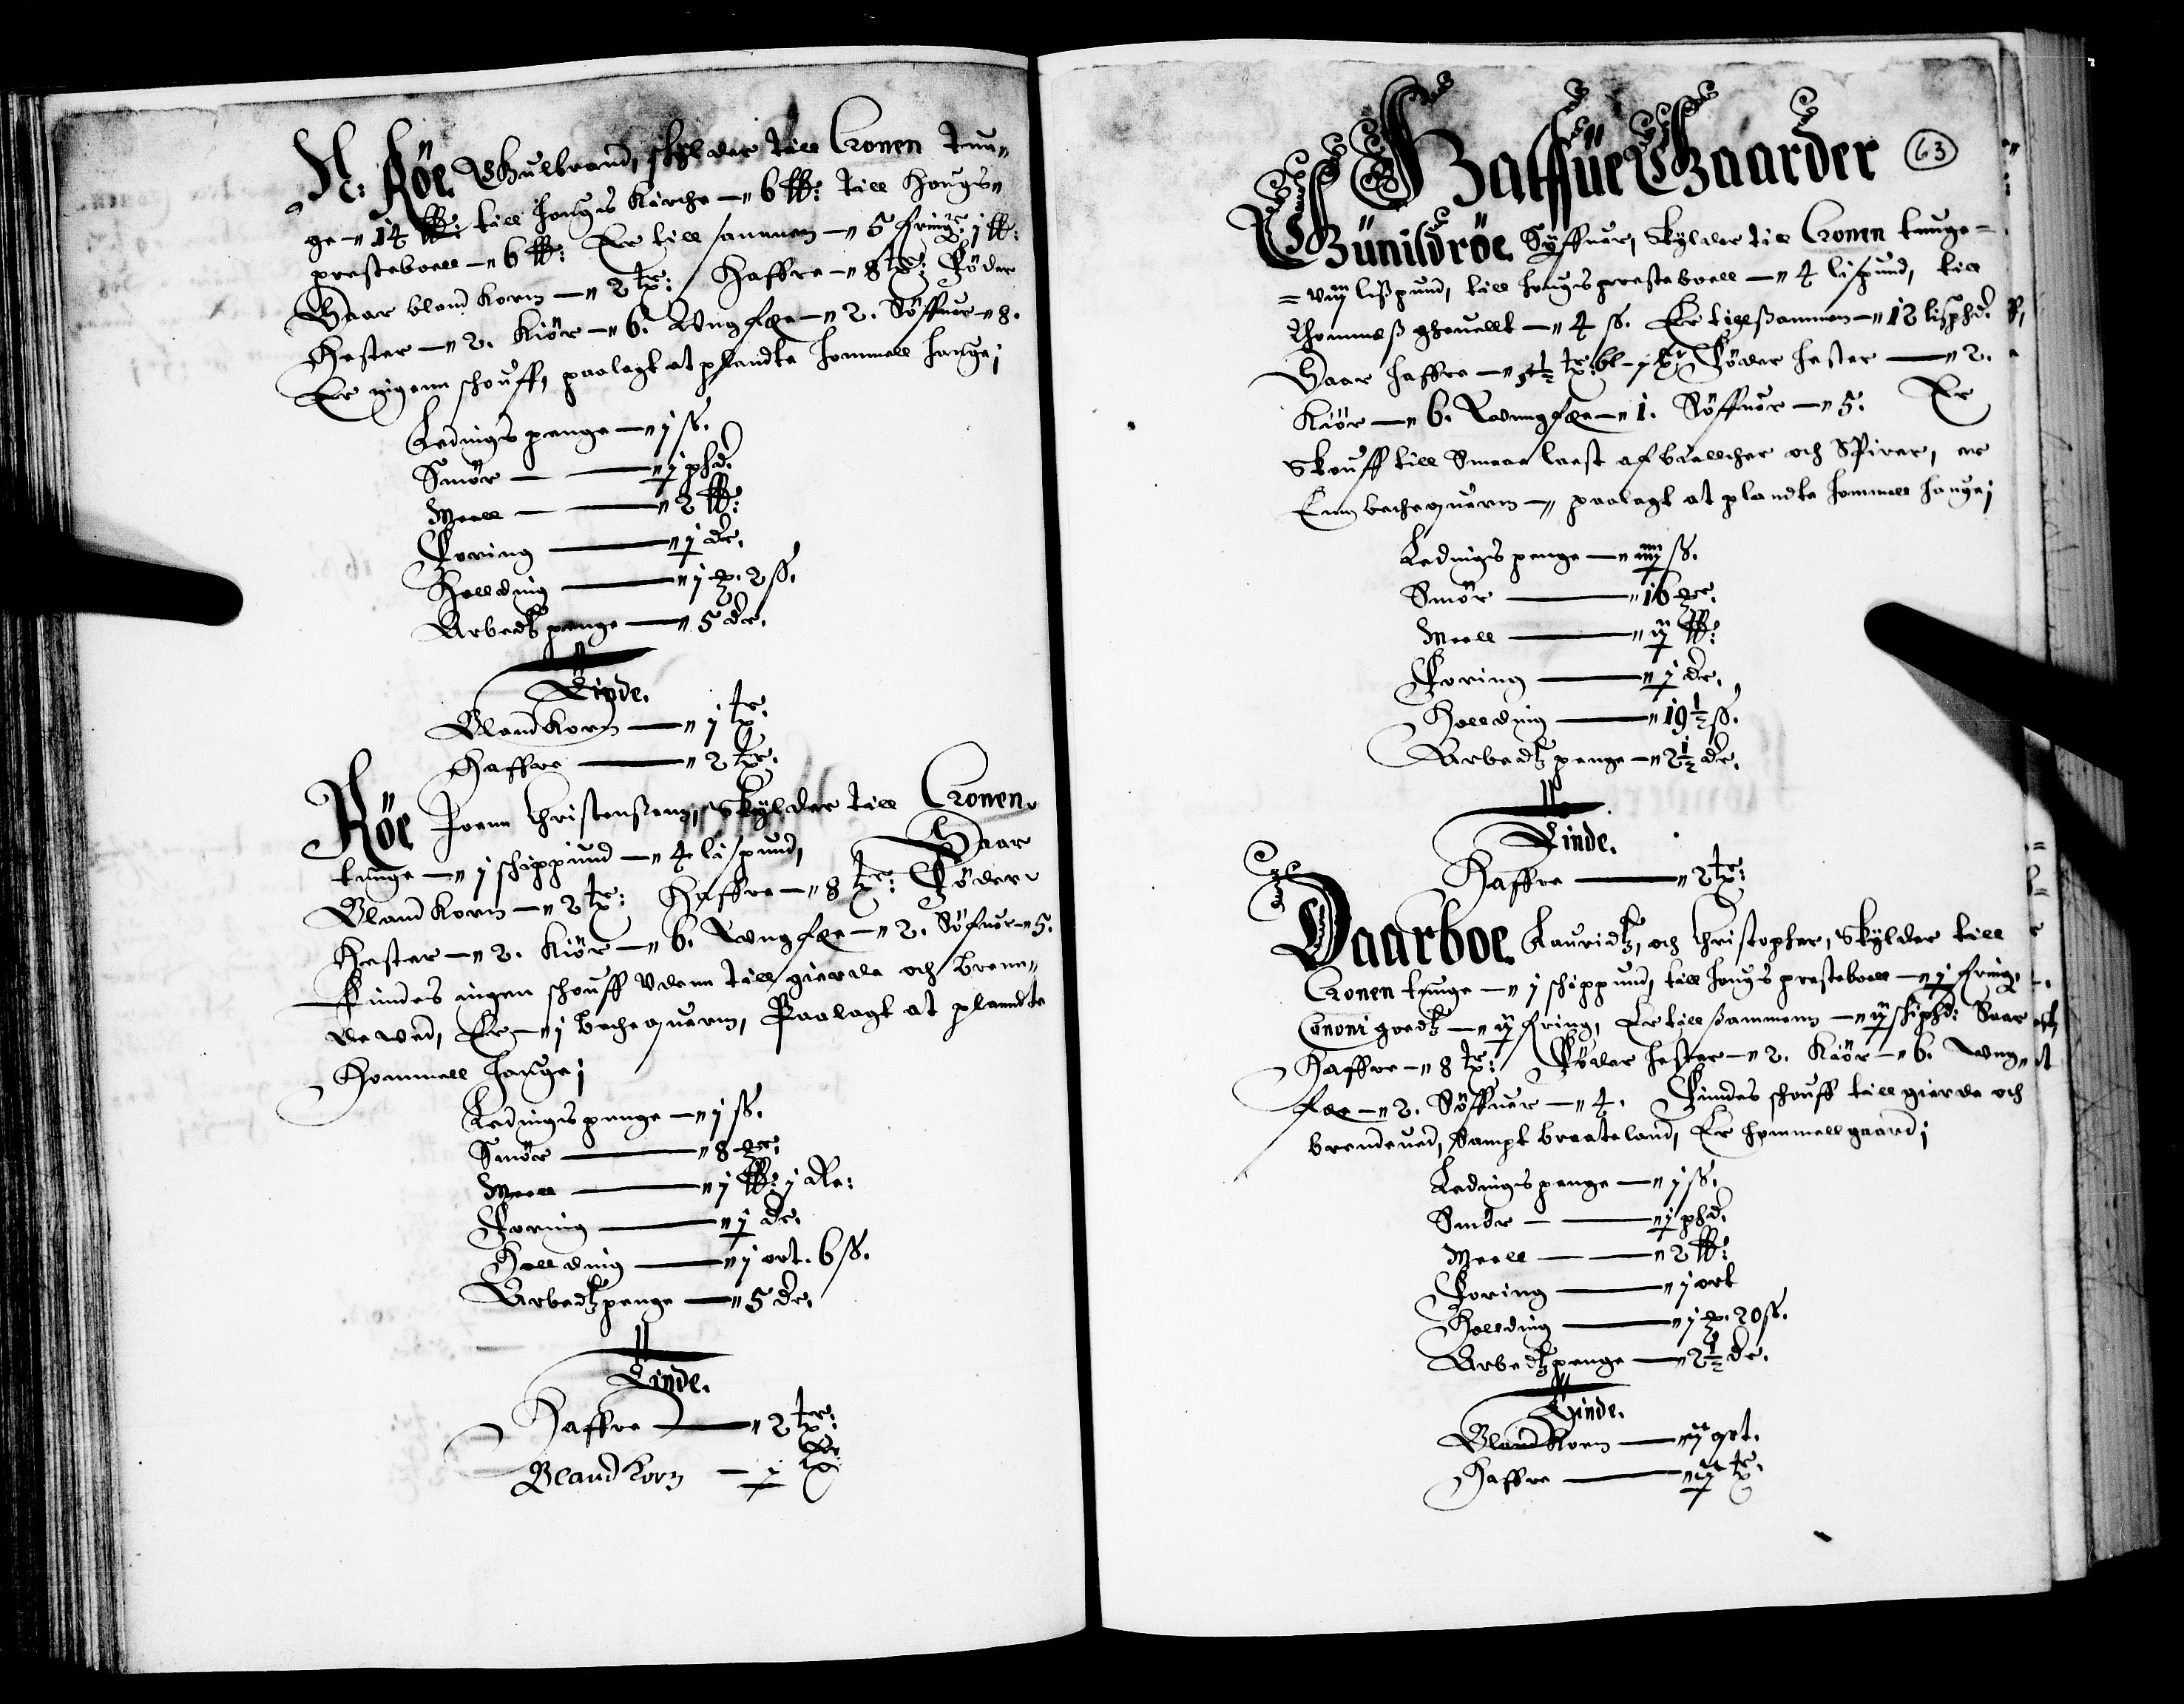 N: Röe Gulbrand, skylder till Cronen tuu„
ge „ 14 ℔: till Hougs Kirche „ 6 ℔: till Hougs„
presteboell „ 6 ℔: Er till sammen „ 5 fring: j ℔:
Saar bland korn — „ 2 tr: Haffre „ 8 tr: Föder
Hester — „ 2. Kiör — „ 6. Vngfæe — „ 2. Söffuer „ 8.
Er ingenn schouff, paalagt at plandte Hommell Hauge;
Ledings penge — „ j ß.
Smör — — „ j phd.
Meell — — „ 2 ℔:
Foring — „ j dr.
Hollding — „ j 2 ß.
Arbedtz penge — „ 5 dr.
Tiende.
Bland korn — „ j tr:
Haffre — „ 2 tr:
Röe Joenn Christenßenn, Skylder till Cronen
tunge — „ j schippund — „ 4 lispund, Saar
Bland korn — „ 2 tr: Haffre — „ 8 tr: Föder
Hester — „ 2. Kiör — „ 6. Vngfæe — „ 2. Söfuer „ 5.
Findes ingen schouff vdenn till gierde och brenn„
de ved, Er — „ j beche quern, Paalagt at plandte
Hommell Hauge;
Ledings penge — „ j ß.
Smör — „ 8
Meell — „ j ℔: j
Foring — „ j dr.
Hollding — „ j ort. 6 ß.
Arbedtz penge — „ 5 dr.
Tiende.
Haffre — „ 2 tr:
Bland korn — j tr:
Halffue Gaarder 63
Gunildröe Syffuer, Skylder till Cronen tunge =
= viij lißpund, till Hougs presteboell — „ 4 lispund, till
Thommeß „ 4 ß. Er tillßammen „ 12 lisphd.
Saar Haffre — Föder Hester — „ 2.
Kiör — „ 6. Vngfæe — „ 1. Söffuer — „ 5. Er
Skouff till Smaae last af biellcher och Spirer, er
Enn beche quern — „ paalagt at plandte Hommell Hauge;
Ledings penge — „ iiij ß.
Smör — „ 16
Meell — „ ij ℔:
Foring — „ j dr.
Hollding — „ 19½ ß.
Arbedtz penge — „ 2½ dr.
Tiende.
Haffre — „ 2 tr:
Daarboe Lauridtz, och Christopher, Skylder till
Cronen tunge — „ j schippund, till Hougs presteboell — „ j fring,
Canonni goedtz — „ ij fring, Er till ßammenn — „ ij shiphd: Saar
Haffre — „ 8 tr: Föder Hester — „ 2. Kiör — „ 6. Vng„
fæe — „ 2. Söffuer — „ 4. Findes schouff till gierde och
brendeued, sampt braateland, Er Hommellgaard;
Ledings penge — „ j ß.
Smör — — „ j phd.
Meell — — „ 2 ℔:
Foring — „ j ort
Hollding — „ j 20 ß.
Arbedtz penge — „ 2½ dr.
Tiende.
Bland korn — „ ij qrt.
Haffre — „ ij tr.